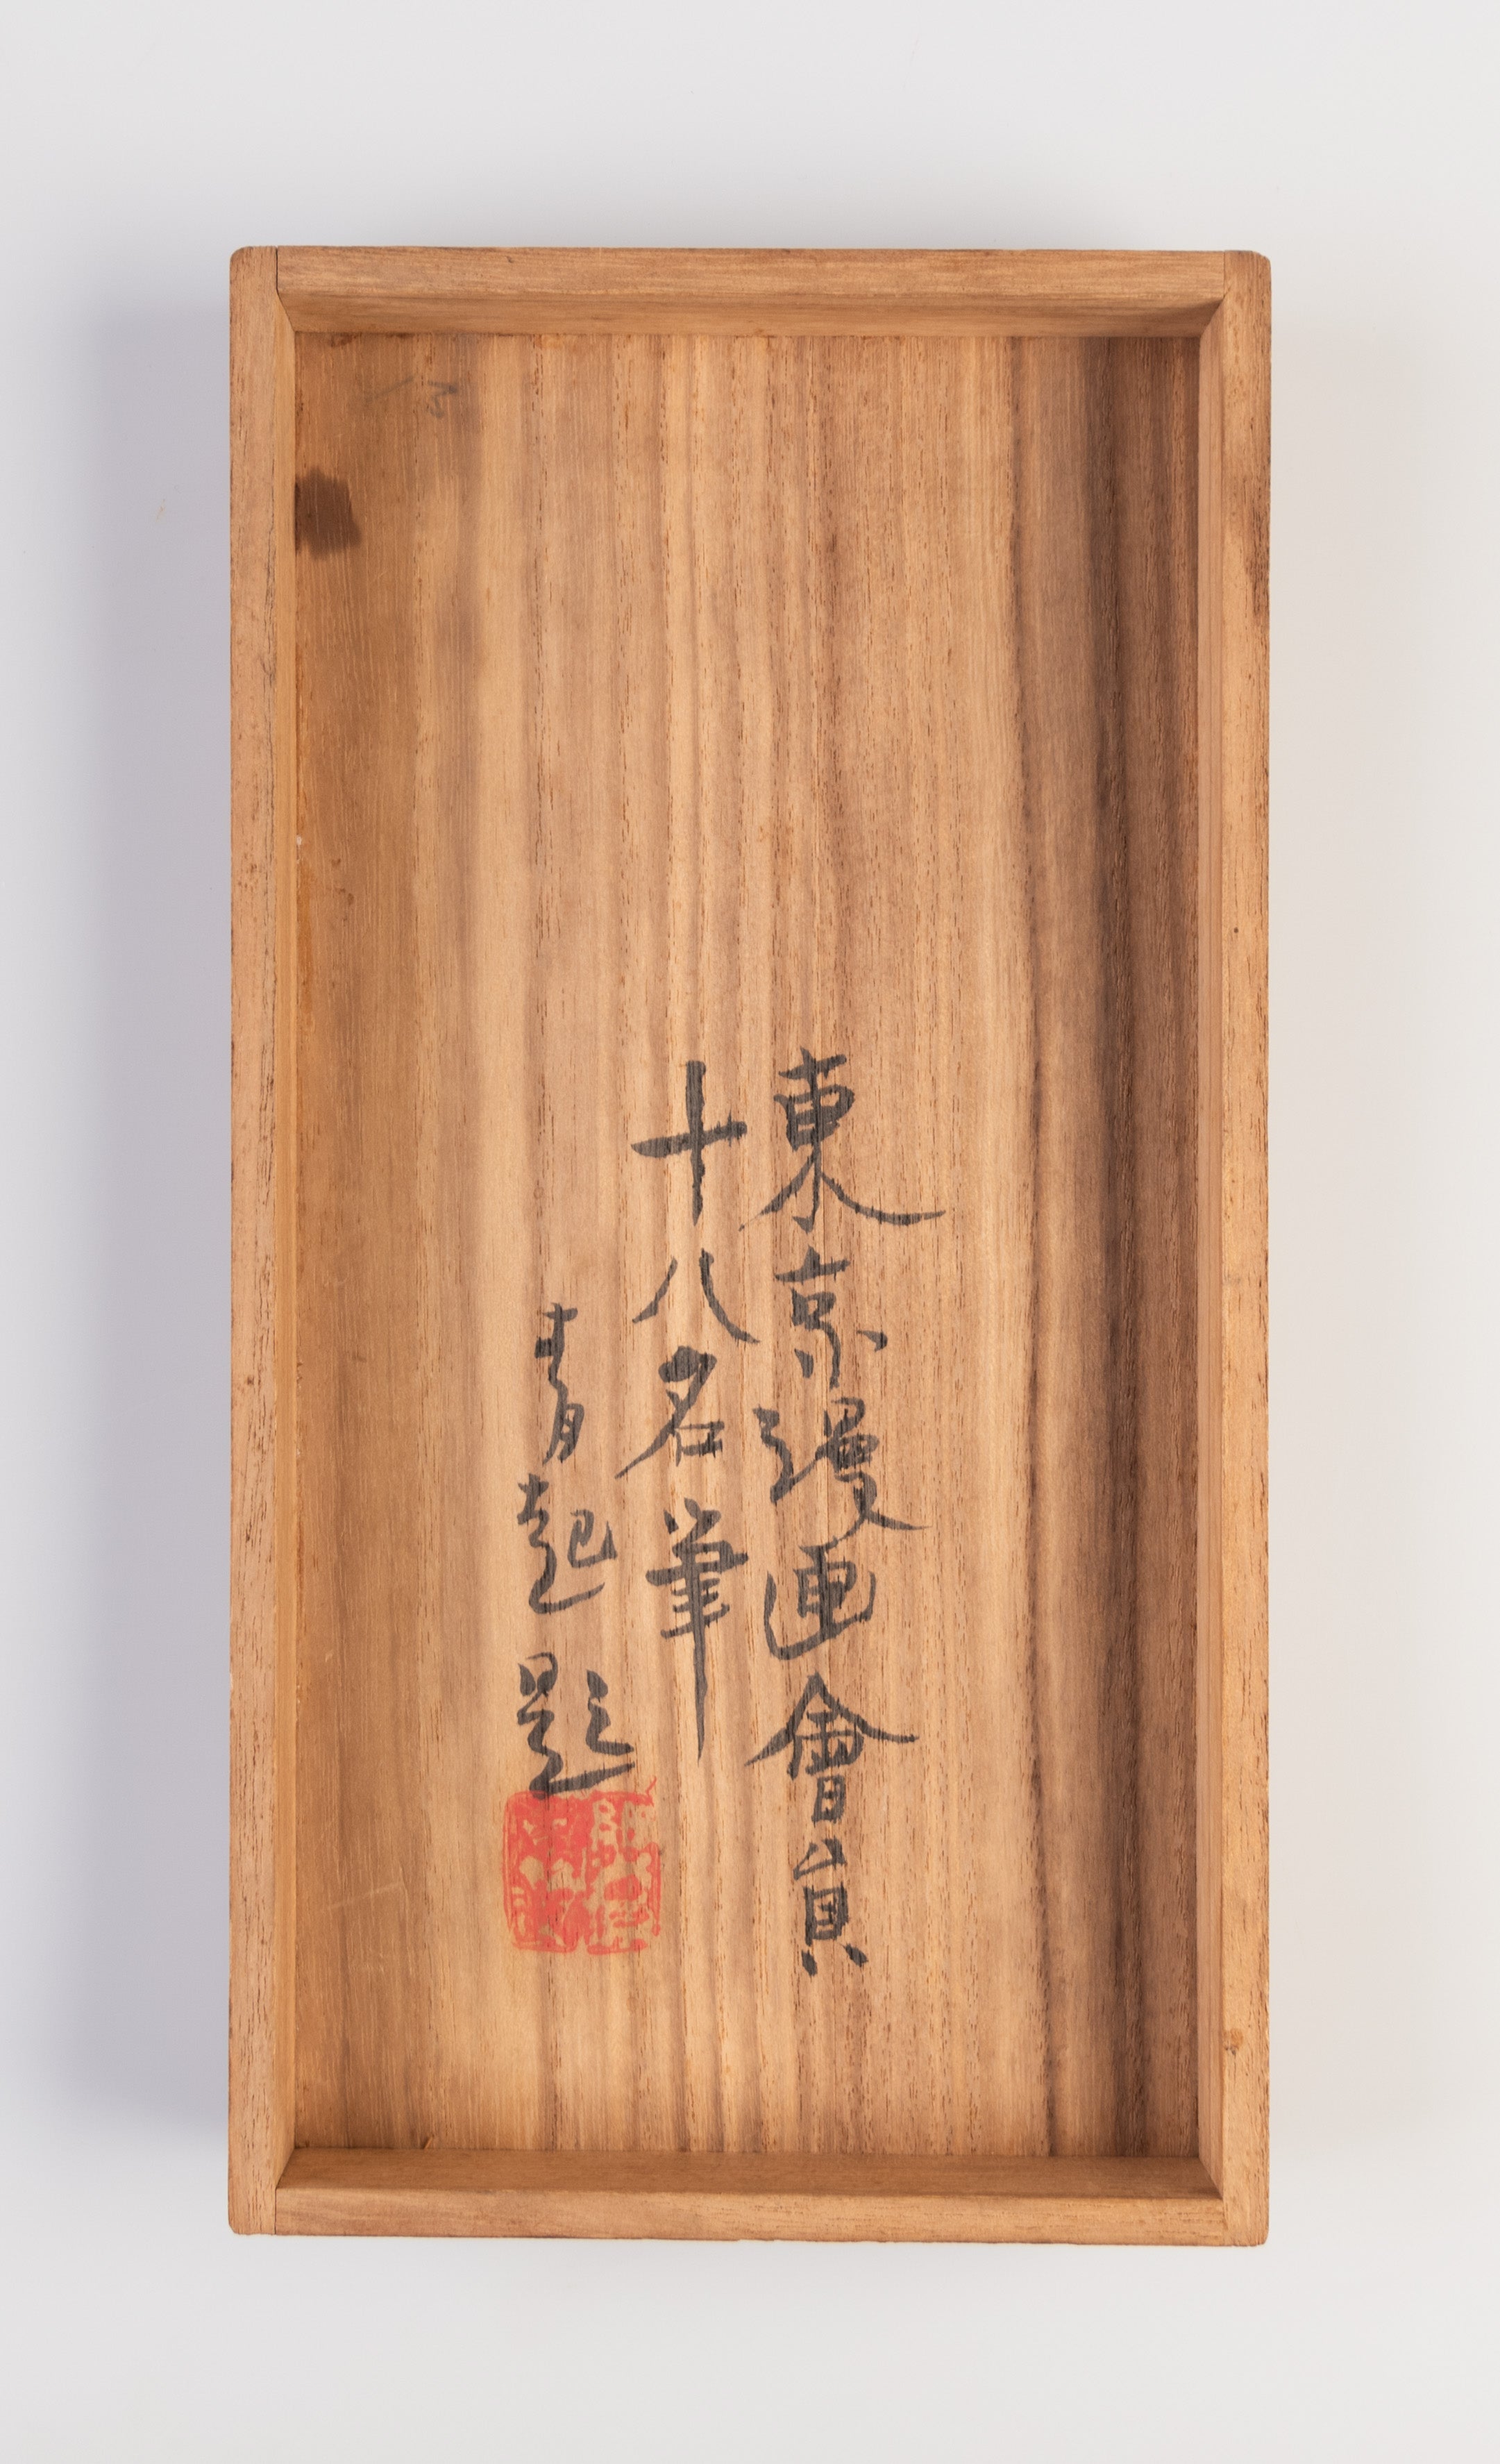 東京漫画會員
十八名筆
青起題